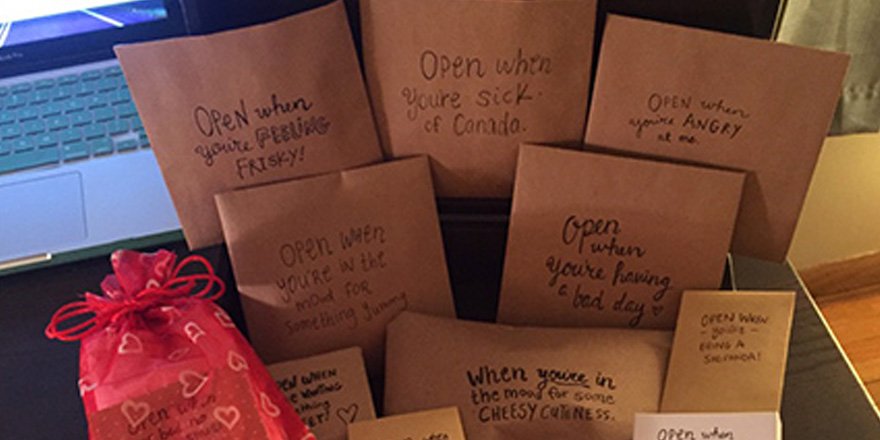 OPEN when
you're FEELING
FRISKY!
Open when
youre sick
of Canada.
OPEN when
you're ANGRY
at me.
OPEN WHEN
YOU'RE IN THE
MOOD FOR
Something yummy
Open
when
You're having
a bad day
OPEN WHEN
- you're -
BEING A
When you're in
the mood for some
CHEESY CUTENESS.
OPEN WHEN
OPEN WHEN
OPEN WHEN
Open when